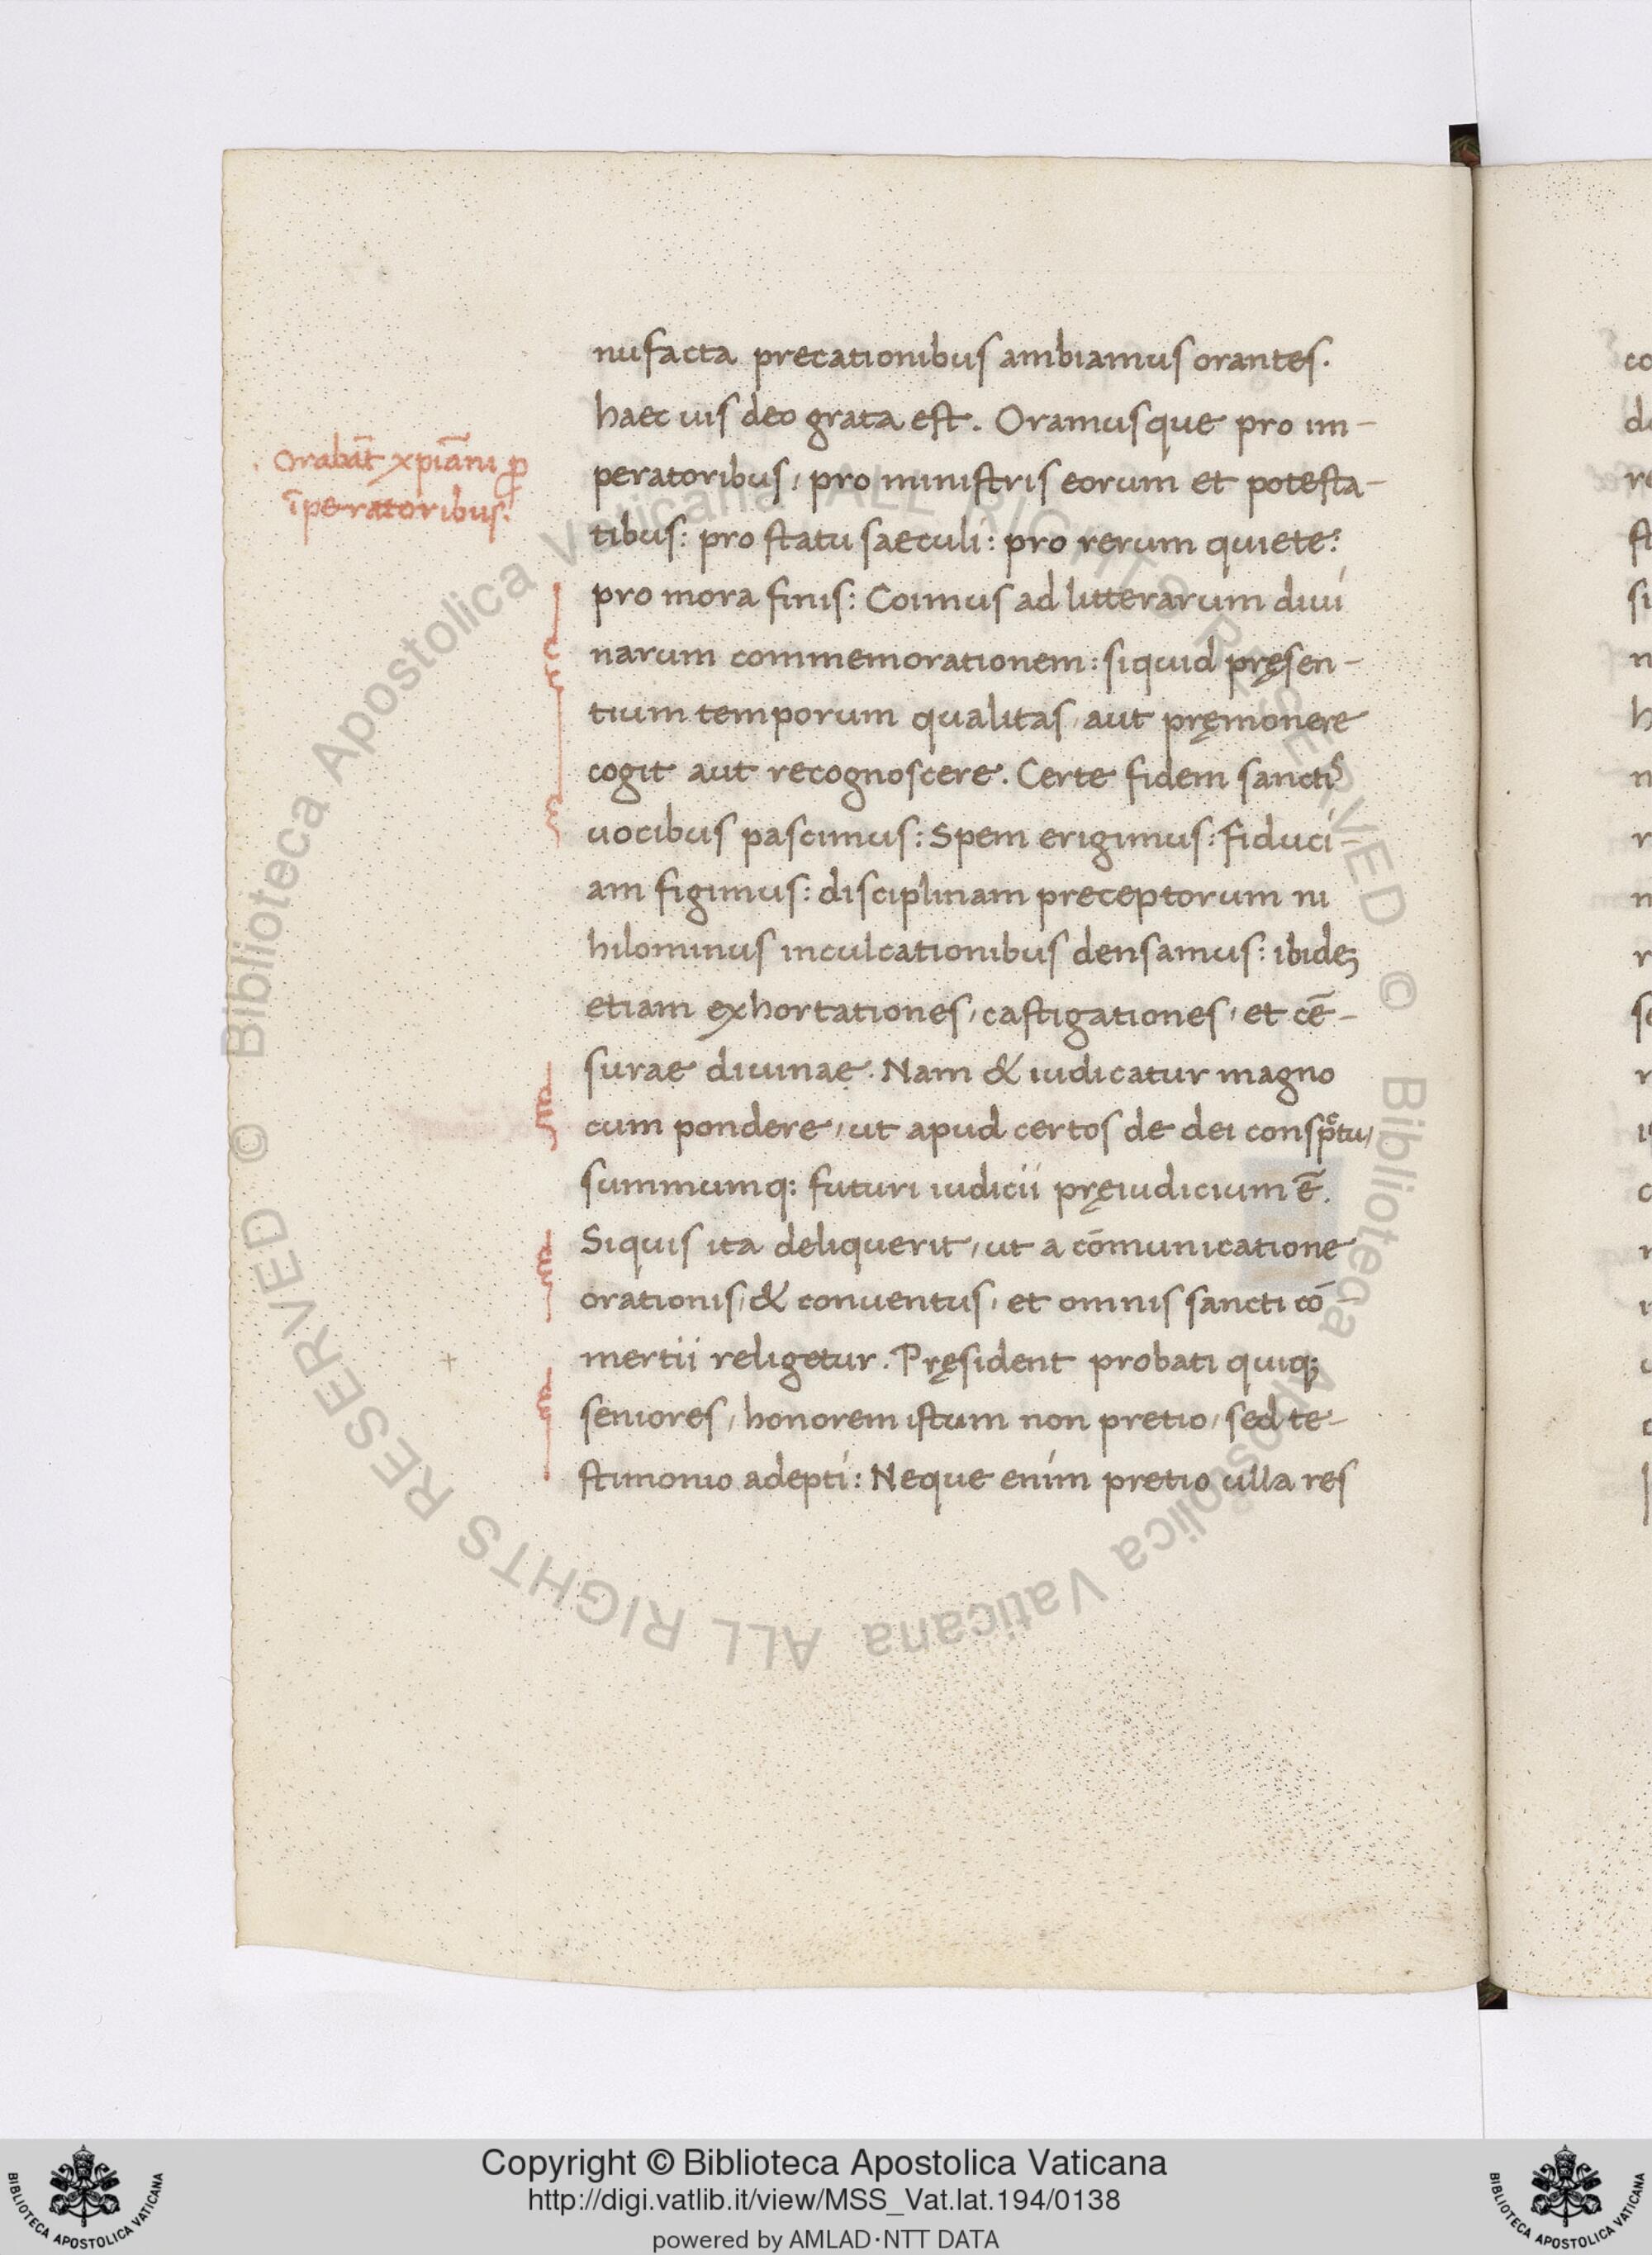 nu facta precationibus ambiamus orantes.
haec uis deo grata est. Oramusque pro im-
peratoribus, pro ministris eorum et potesta-
tibus: pro statu saeculi: pro rerum quiete:
pro mora finis: Coimus ad litterarum diui
narum commemorationem: siquid pręsen-
tium temporum qualitas, aut pręmonere
cogit aut recognoscere. Certe fidem sanctis
uocibus pascimus: Spem erigimus: fiduci-
am figimus: disciplinam preceptorum ni
hilominus inculcationibus densamus: ibideꝫ
etiam exhortationes, castigationes, et cē-
surae diuinae. Nam & iudicatur magno
cum pondere, ut apud certos de dei conspͨtu,
summumq: futuri iudicii pręiudicium ē.
Siquis ita deliquerit, ut a cōmunicatione
orationis, & conuentus, et omnis sancti cō-
mertii religetur. Pręsident probati quiq;
seniores, honorem istum non pretio, sed te-
stimonio adepti: Neque enim pretio ulla res
Orabāt xpiāni ꝓ
īperatoribus.
Copyright © Biblioteca Apostolica Vaticana
http://digi.vatlib.it/view/MSS_Vat.lat.194/0138
powered by AMLAD·NTT DATA
BIBLIOTECA APOSTOLICA VATICANA
BIBLIOTECA APOSTOLICA VATICANA
© Biblioteca Apostolica Vaticana ALL RIGHTS RESERVED © Biblioteca Apostolica Vaticana ALL RIGHTS RESERVED